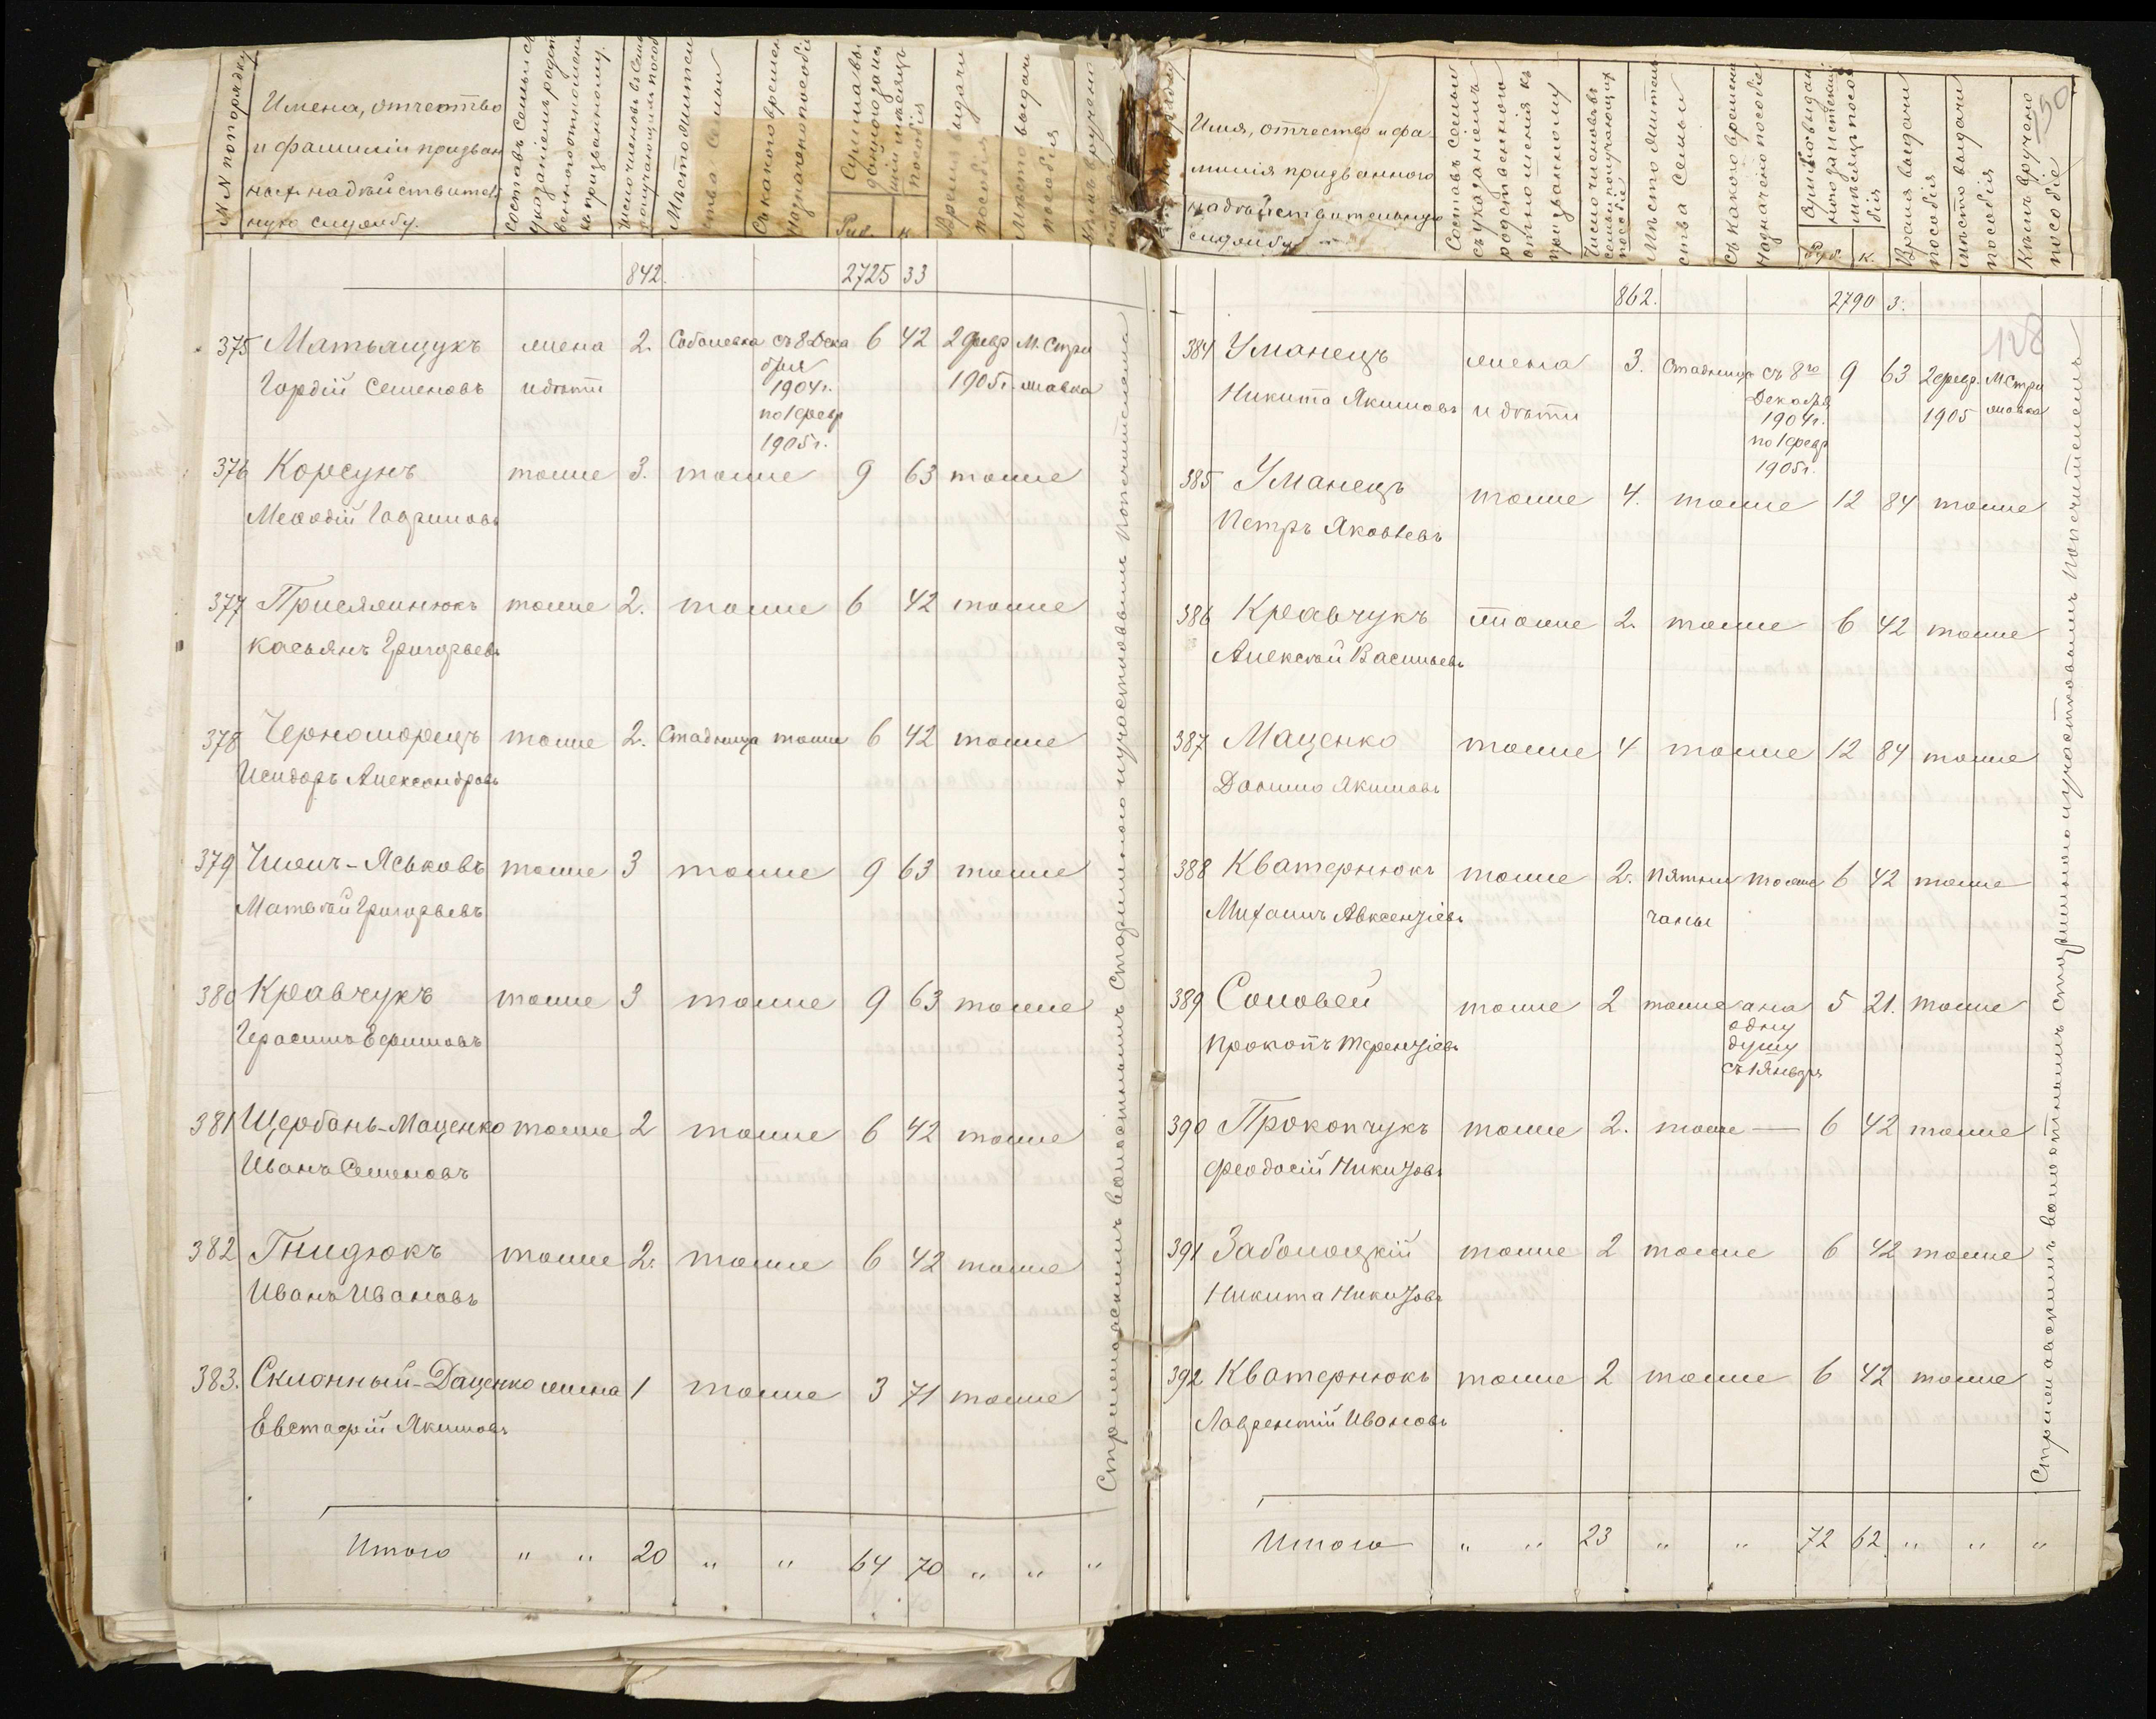 №№ по порядку
Имена, отчество
и фамиліи призван
ныхъ на дѣйствитель
ную службу.
Составъ семьи съ
указаніемъ родст
веннаго отношенія
къ призванному.
Число членовъ въ семьѣ
получающихъ пособ
Мѣсто житель
ства семьи
Съ какого времен
назначено пособіе
Сумма вы
пособія
Руб. к.
Время выдачи
пособія
Мѣсто выдачи
пособія
Кѣмъ вручено
842. 2725 33
375 Матьящукъ жена 2. Соболевка съ 8 Дека 6 42 2 февр М. Стри
бря
Гордій Семеновъ и дѣти 1904г. 1905г. жавка
по 1 февр
1905г.
376 Корсунъ тоже 3. тоже 9 63 тоже
Меѳодій Гавриловъ
377 Присяжнюкъ тоже 2. тоже 6 42 тоже
Касьянъ Григорьевъ
378 Черноморецъ тоже 2. Стадница тоже 6 42 тоже
Исидоръ Александровъ
379 Чижъ-Яськовъ тоже 3 тоже 9 63 тоже
Матвѣй Григорьевъ
380 Кравчукъ тоже 3 тоже 9 63 тоже
Герасимъ Ефимовъ
381 Щербань-Маценко тоже 2 тоже 6 42 тоже
Иванъ Семеновъ
382 Гнидюкъ тоже 2. тоже 6 42 тоже
Иванъ Ивановъ
383. Склонный-Даценко жена 1 тоже 3 71 тоже
Евстафій Якимовъ
Итого " " 20 " " 64 70 " " "
волостнымъ Старшиною и участковымъ Попечителемъ
Имя, отчество и фа
милія призваннаго
на дѣйствительную
службу
Составъ семьи
съ указаніемъ
родственнаго
отношенія къ
призванному
Число членовъ
семьи получающихъ
пособіе
Мѣсто житель
ства семьи
Съ какого времени
назначено пособіе
Руб. к.
Время выдачи
пособія
мѣсто выдачи
пособія
Кѣмъ вручено
пособіе
150
128
862. 2790 3.
384 Уманецъ жена 3. Стадница съ 8го 9 63 2 февр. М. Стри
Никита Якимовъ и дѣти Декабря 1905 жавка
1904г.
по 1 февр
1905г.
385 Уманецъ тоже 4. тоже 12 84 тоже
Петръ Яковлевъ
386 Кравчукъ тоже 2. тоже 6 42 тоже
Алексѣй Васильевъ
387 Маценко тоже 4 тоже 12 84 тоже
Данило Якимовъ
388 Кватернюкъ тоже 2. Пятни тоже 6 42 тоже
Михаилъ Авксентіевъ чаны
389 Соловей тоже 2 тоже а на 5 21. тоже
одну
Прокопъ Терентіевъ душу
съ 1 Января
390 Прокопчукъ тоже 2. тоже — 6 42 тоже
Феодосій Никитовъ
391 Заболоцкій тоже 2 тоже 6 42 тоже
Никита Никитовъ
392 Кватернюкъ тоже 2 тоже 6 42 тоже
Лаврентій Ивановъ
Итого " " 23 " " 72 62. " " "
волостнымъ старшиною и участковымъ попечителемъ